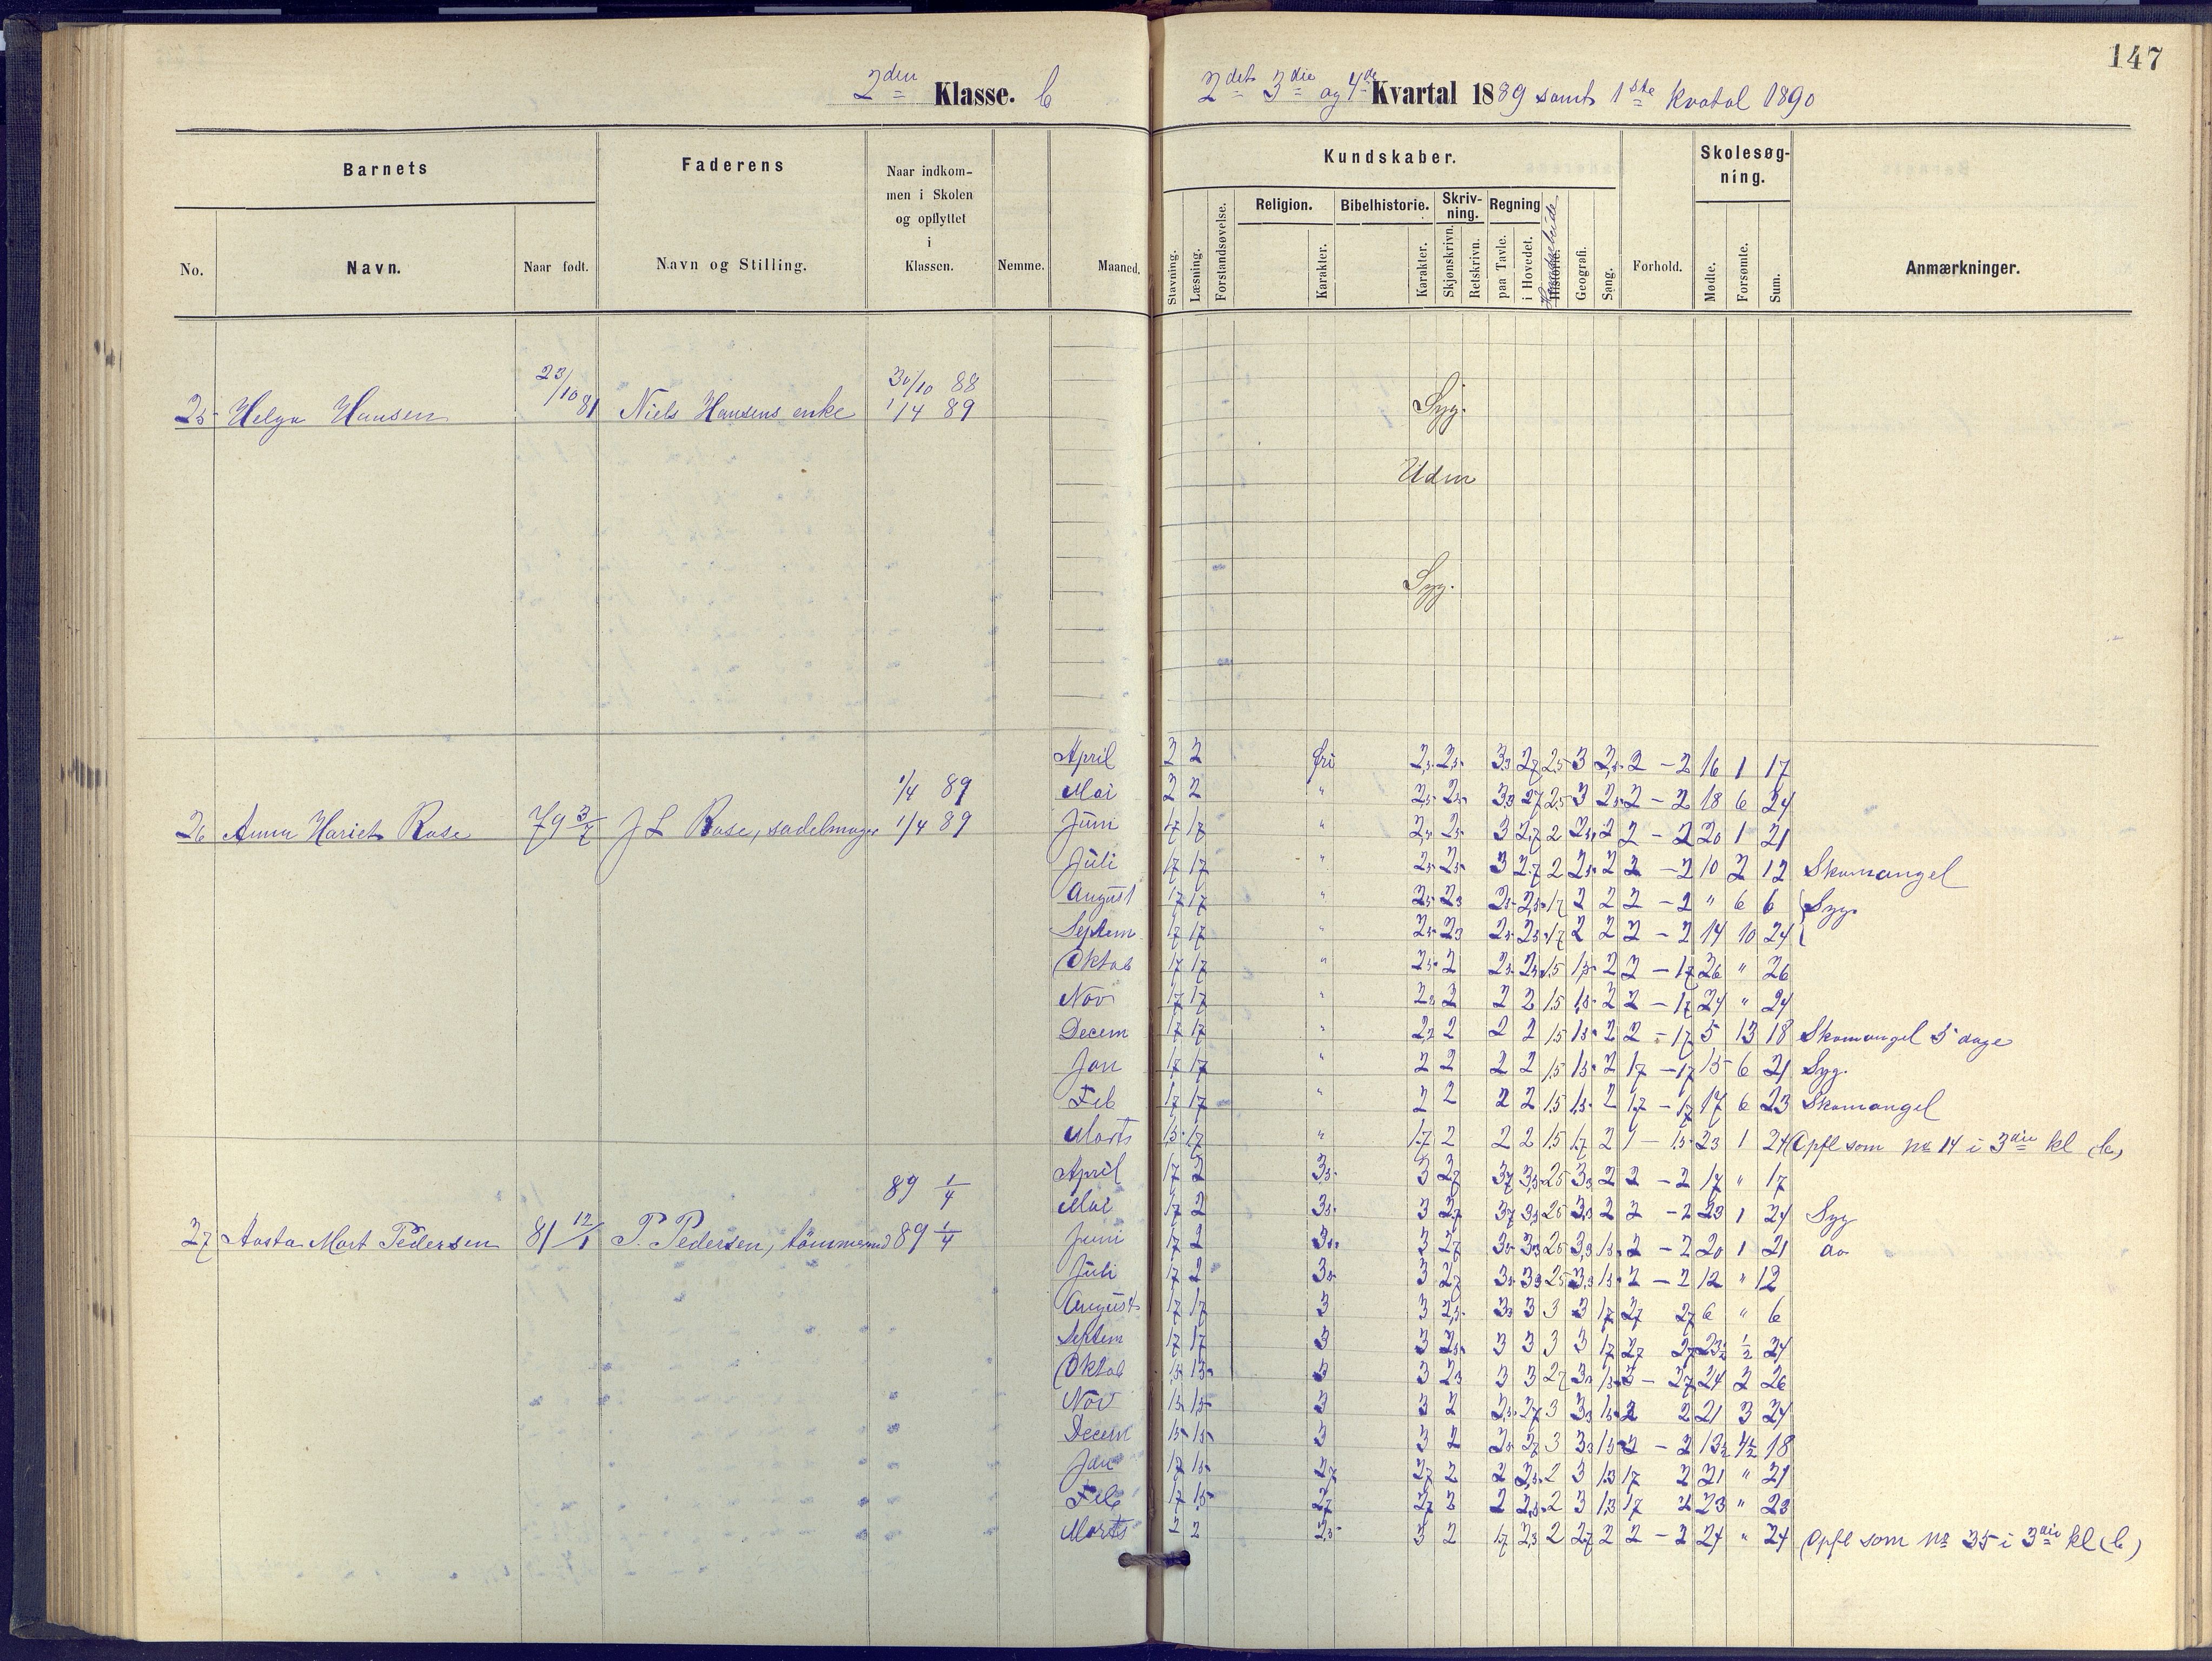 147
2den Klasse. b
2det 3die og 4de Kvartal 1889 samt 1ste Kvatal 1890
Barnets
Faderens
Naar indkom-
men i Skolen
og opflyttet
i
Klassen.
Kundskaber.
Skolesøg-
ning.
No.
Navn.
Naar født.
Navn og Stilling.
Nemme.
Maaned.
Stavning.
Læsning.
Forstandsøvelse.
Religion.
Karakter.
Bibelhistorie.
Karakter.
Skriv-
ning.
Skjønskrivn.
Retskrivn.
Regning
paa Tavle.
i Hovedet.
Historie.
Geografi.
Sang.
Forhold.
Mødte.
Forsømte.
Sum.
Anmærkninger.
25 Helga Hansen 23/10 81 Niels Hansens enke 30/10 88
1/4 89
Syg.
Udm
Syg.
26 Anna Hariet Rase 79 3/7 J L Rase, sadelmager 1/4 89
1/4 89
April 2 2 fri 2,5 2,5 3,3 2,7 2,5 3 2,5 2 - 2 16 1 17
Mai 2 2 " 2,5 2,5 3,3 2,7 2,5 3 2,5 2 - 2 18 6 24
Juni 1,7 1,7 " 2,5 2,5 3 2,7 2 2,5 2 2 - 2 20 1 21
Juli 1,7 1,7 " 2,5 2,5 3 2,7 2 2,5 2 2 - 2 10 2 12 Skomangel
August 1,7 1,7 " 2,5 2,3 2,5 2,5 1,7 2 2 2 - 2 " 6 6 Syg.
Septem 1,7 1,7 " 2,5 2,3 2,5 2,3 1,7 2 2 2 - 2 14 10 24
Oktob 1,7 1,7 " 2,5 2 2,3 2,3 1,5 1,5 2 2 - 1,7 26 " 26
Nov 1,7 1,7 " 2,2 2 2 2 1,5 1,5 2 2 - 1,7 24 " 24
Decem 1,7 1,7 " 2,2 2 2 2 1,5 1,5 2 2 - 1,7 5 13 18 Skomangel 5 dage
Jan 1,7 1,7 " 2 2 2 2 1,5 1,5 2 1,7 - 1,7 15 6 21 Syg.
Feb 1,7 1,7 " 2 2 2 2 1,5 1,5 2 1,7 - 1,7 17 6 23 Skomangel
Marts 1,5 1,7 " 1,7 2 2 2 1,5 1,7 2 1 - 1,5 23 1 24 Opfl som no 14 i 3die kl (b)
27 Aasta Mart Pedersen 81 12/1 P. Pedersen, tömmermd 89 1/4
89 1/4
April 1,7 2 3,5 3 2,7 3,7 3,5 2,5 3,3 2 2 - 2 17 " 17
Mai 1,7 2 3,5 3 2,7 3,7 3,5 2,5 3,3 2 2 - 2 23 1 24 Syg
Juni 1,7 2 3,5 3 2,7 3,5 3,3 2,5 3,3 1,5 2 - 2 20 1 21 do
Juli 1,7 2 3,5 3 2,7 3,5 3,3 2,5 3,3 1,5 2 - 2 12 " 12
August 1,7 1,7 3 3 2,5 3,3 3 3 3 1,7 2,7 2,7 6 " 6
Septem 1,7 1,7 3 3 2,5 3 3 3 3 1,7 2,7 2,7 23½ ½ 24
Oktob 1,5 1,5 3 3 2,3 3 3 2,7 3,3 1,5 3 - 2,7 24 2 26
Nov 1,5 1,5 3 3 2 2,5 2,7 3 3,3 1,5 2 2 21 3 24
Decem 1,5 1,5 3 3 2 2,5 2,7 3 3,3 1,5 2 - 2 13½ 4½ 18
Jan 1,7 1,5 2,7 2,7 2 2 2,5 2 3 1,3 1,7 2 21 " 21
Feb 1,7 1,5 2,7 2,7 2 2 2,5 2 3 1,3 1,7 2 23 " 23
Marts 2 2 2,5 3 2 1,7 2,3 2 2,7 2 2 - 2 24 " 24 Opfl som no 35 i 3die kl (b)